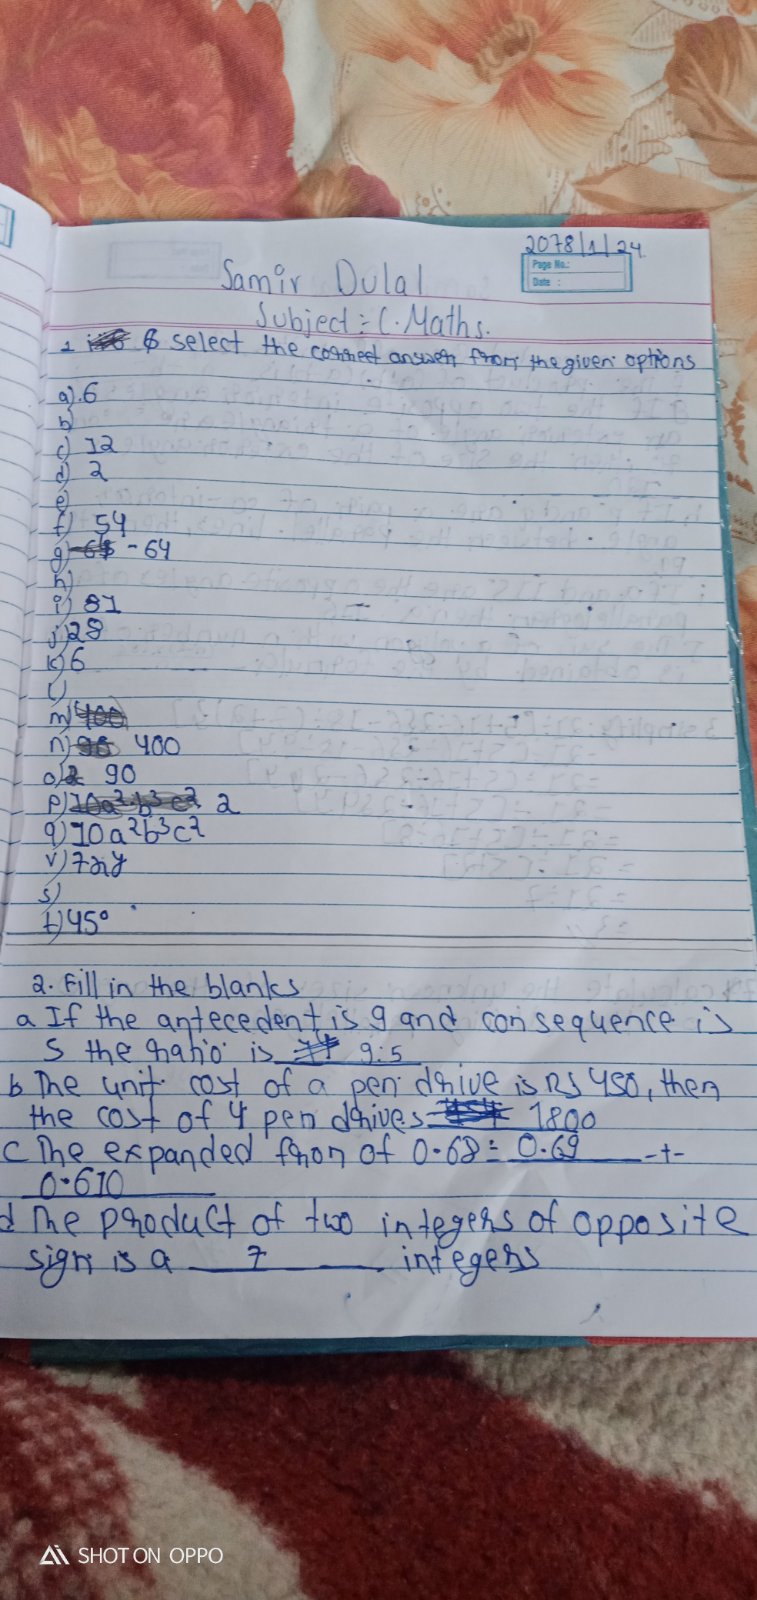 2078/1/24
Page No.:
Date :
Samir Dulal
Subject = C. Maths.
1 select the correct answer from the given options
a) 6
b)
c) 12
d) 2
e)
f) 54
g) - 64
h)
i) 81
j) 28
k) 6
l)
m) 400
n) 400
o) 90
p) 10a²b³c² 2
q) 10a²b³c²
r) 7xy
s)
t) 45°
2. Fill in the blanks
a If the antecedent is 9 and consequence is
5 the ratio is 9:5
b The unit cost of a pen drive is RS 450, then
the cost of 4 pen drives 1800
c The expanded fron of 0.68 = 0.69 +
0.610
d The product of two integers of opposite
sign is a 7 integers
SHOT ON OPPO